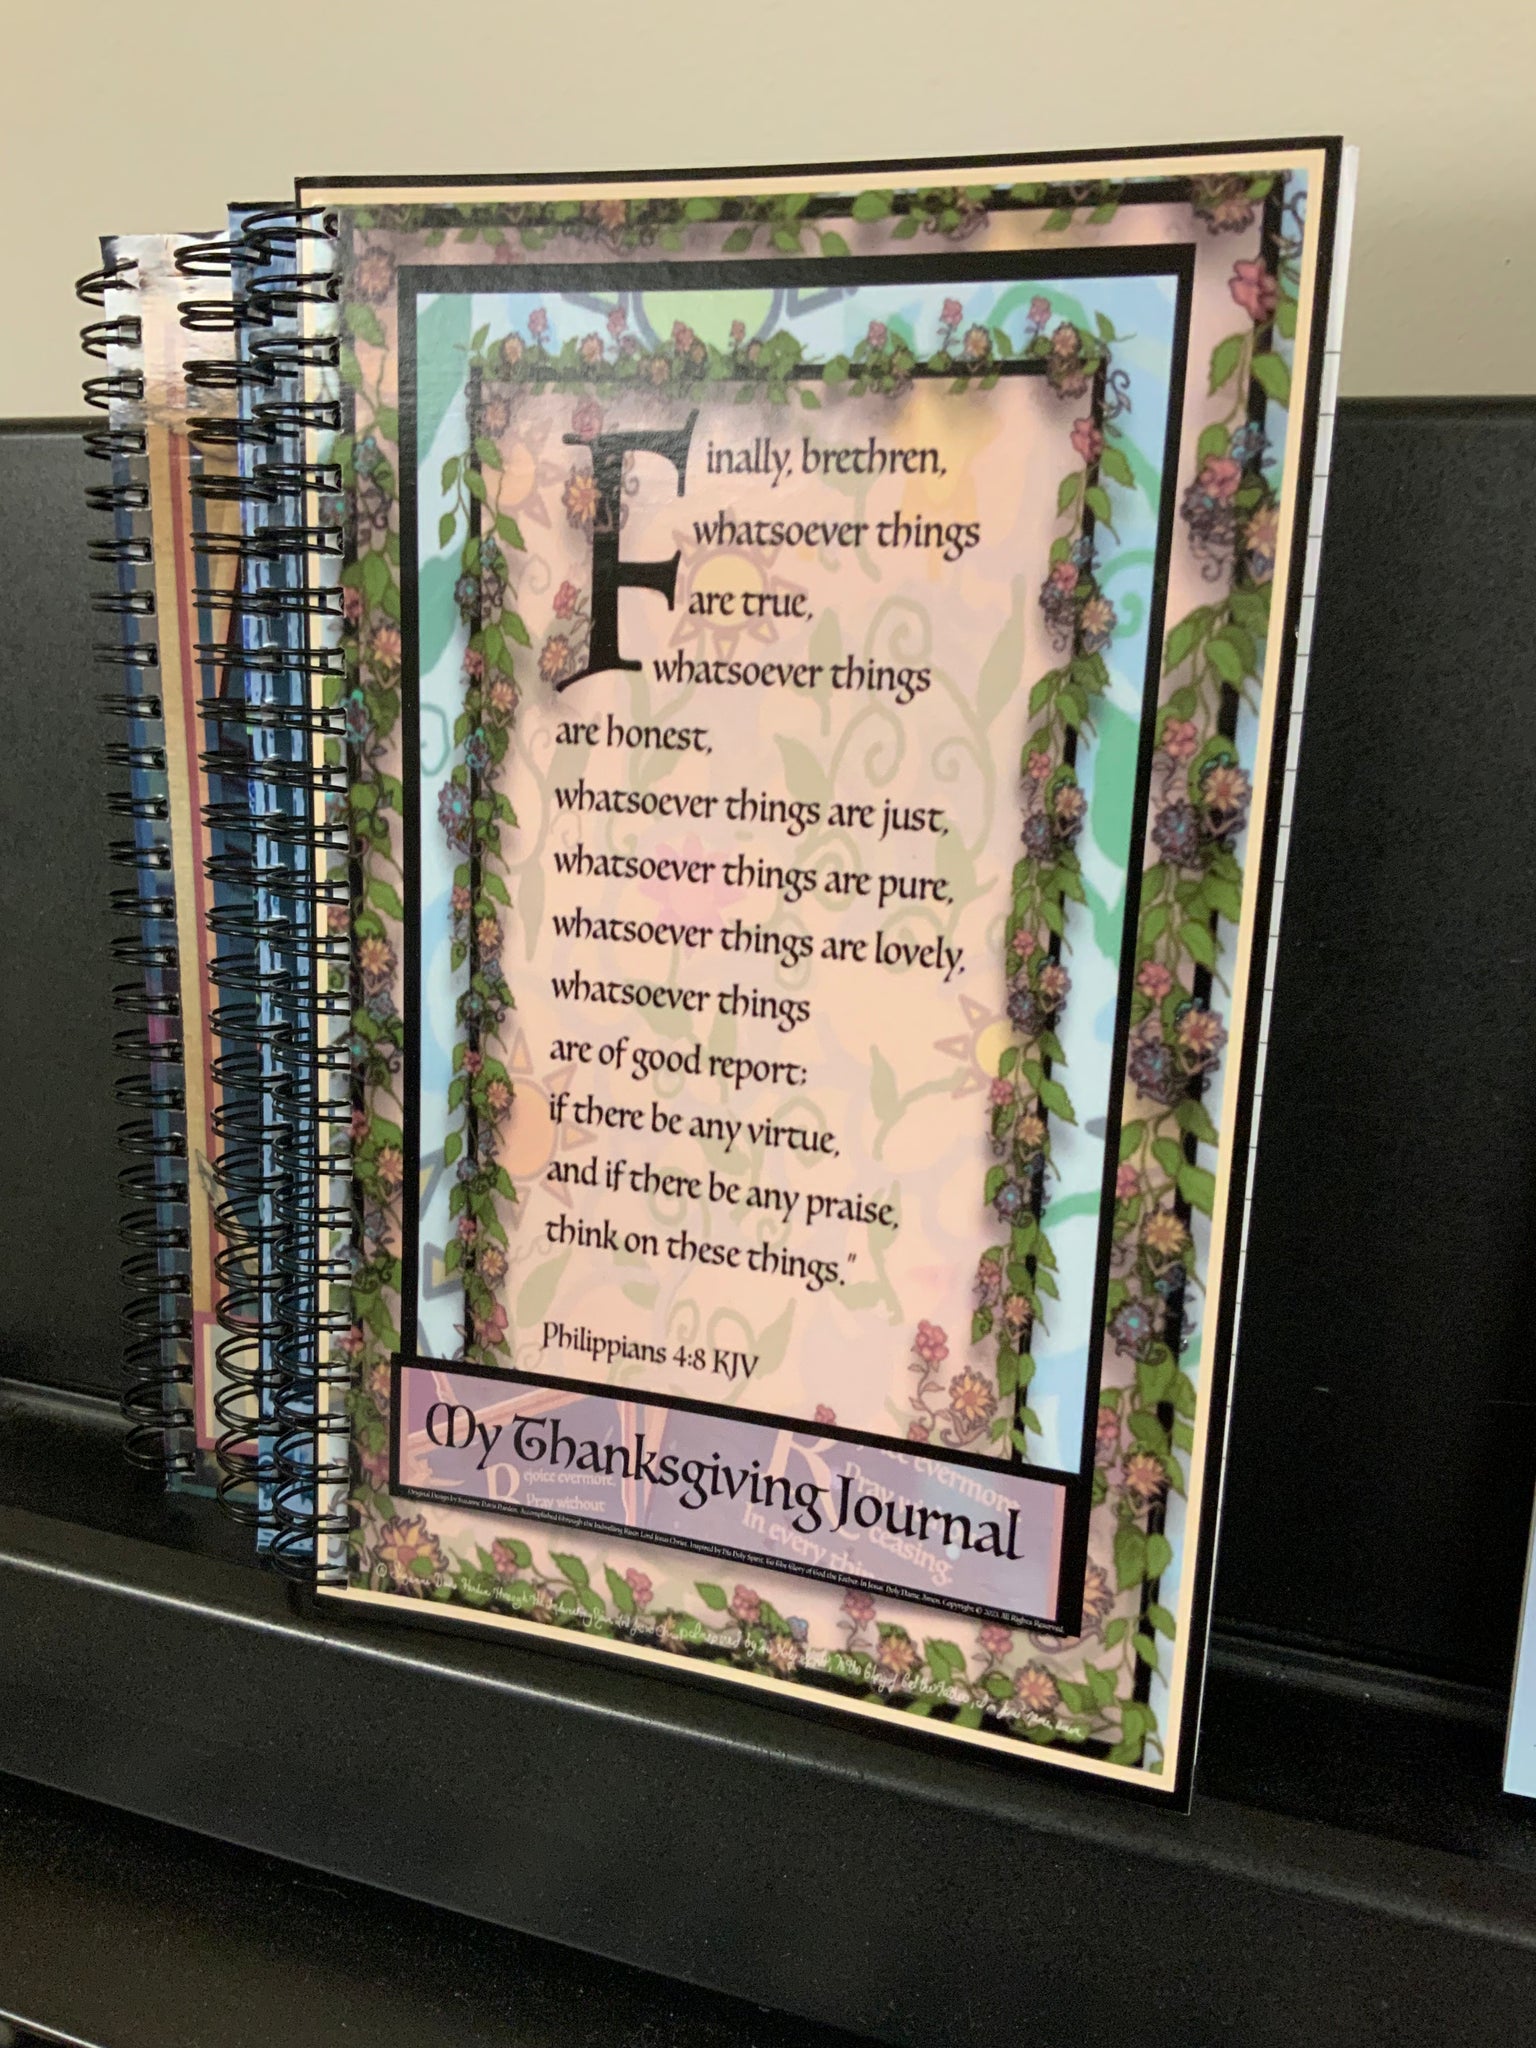 Finally, brethren,
whatsoever things
are true,
whatsoever things
are honest,
whatsoever things are just,
whatsoever things are pure,
whatsoever things are lovely,
whatsoever things
are of good report;
if there be any virtue,
and if there be any praise,
think on these things."
Philippians 4:8 KJV
My Thanksgiving Journal
Rejoice evermore,
Pray without
evermore
Pray
ceasing.
In every thin
Original Design by Suzanne Davis Harden, Accomplished through the Indwelling Risen Lord Jesus Christ, Inspired by His Holy Spirit, to the Glory of God the Father, In Jesus' Holy Name, Amen. Copyright © 2023. All Rights Reserved.
© Suzanne Davis Harden through the Indwelling Risen Lord Jesus Christ, inspired by His Holy Spirit, To the Glory of God the Father, In